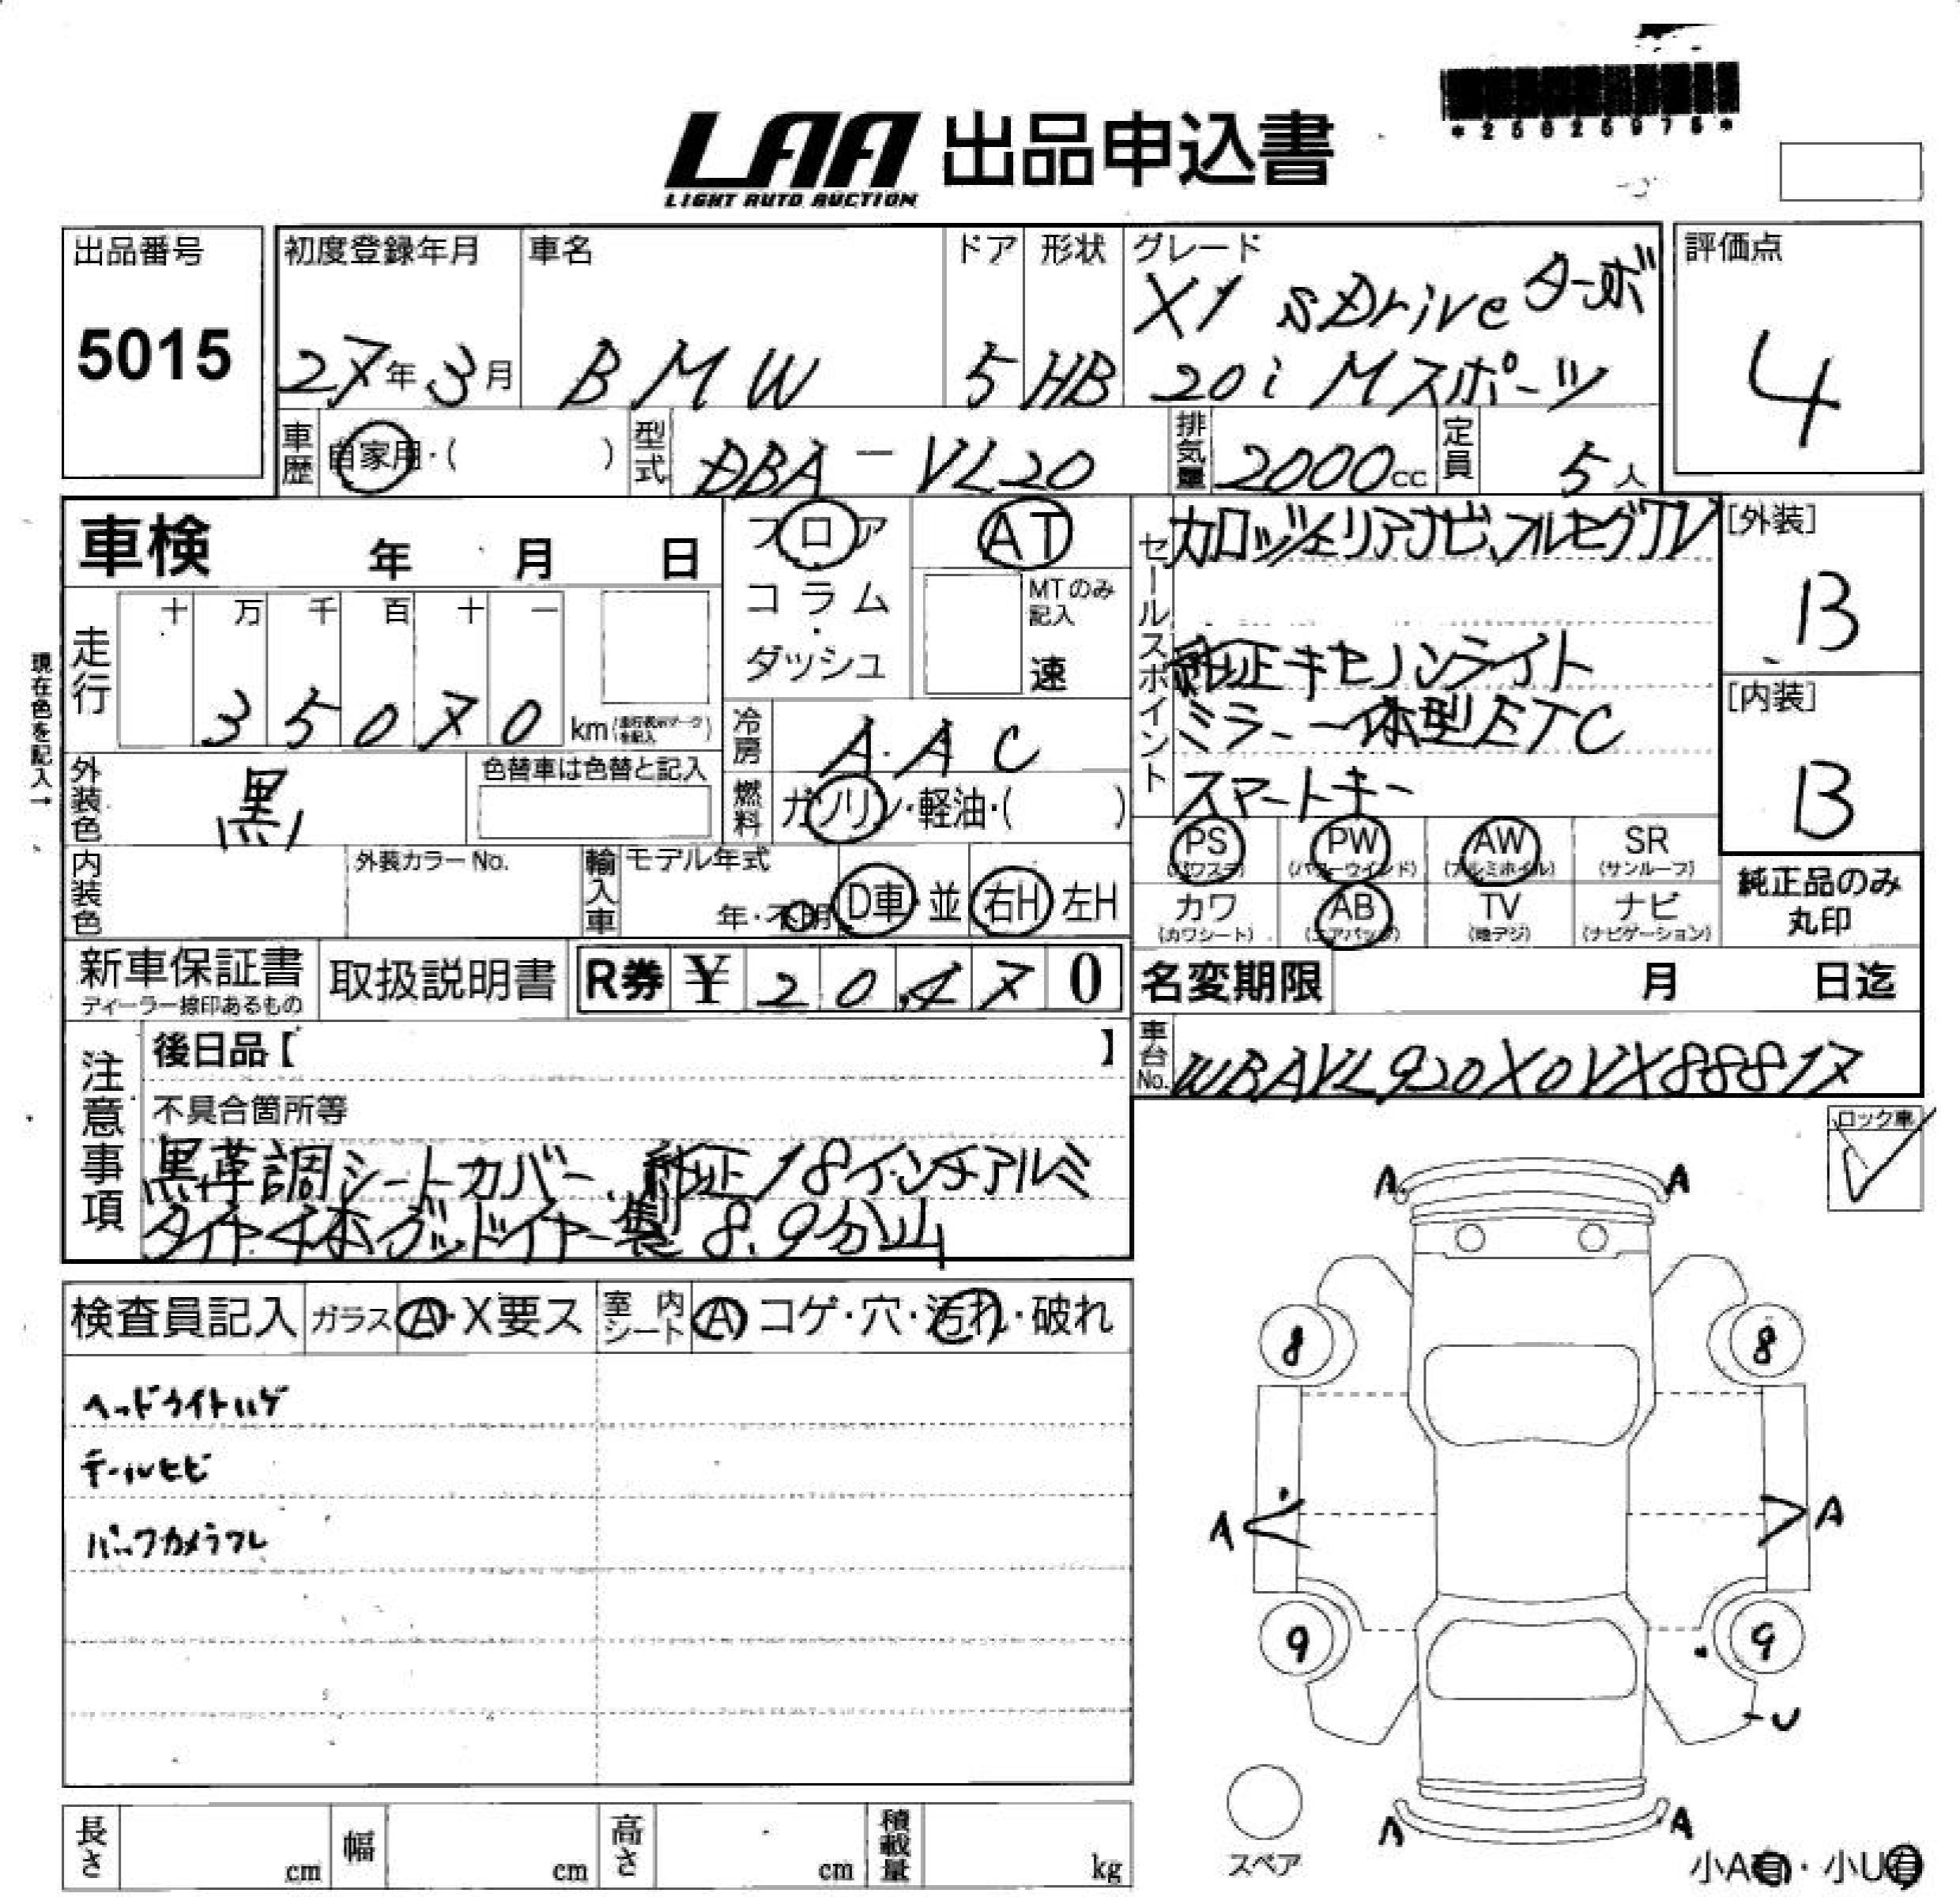 *25025975*
LAA 出品申込書
LIGHT AUTO AUCTION
出品番号 初度登録年月 車名 ドア 形状 グレード 評価点
5015 27年3月 BMW 5 HB X1 sDrive ターボ 4
20i Mスポーツ
車歴 自家用・( ) 型式 DBA-VL20 排気量 2000cc 定員 5人
車検 年 月 日 フロア AT セールスポイント カロッツェリアナビ、フルセグTV [外装]
コラム・ MTのみ記入 B
走行 十 万 千 百 十 一 ダッシュ 速 純正キセノンライト
35070 km 冷房 AAC ミラー一体型ETC [内装]
現在色を記入→
外装色 黒 色替車は色替と記入 燃料 ガソリン・軽油・( ) スマートキー B
PS (パワステ) PW (パワーウインド) AW (アルミホイル) SR (サンルーフ)
内装色 外装カラーNo. 輸入車 モデル年式 年・不明 D車・並 右H 左H カワ (カワシート) AB (エアバッグ) TV (地デジ) ナビ (ナビゲーション) 純正品のみ
丸印
新車保証書 取扱説明書 R券 ¥ 20,470 名変期限 月 日迄
ディーラー捺印あるもの
注意事項 後日品【 】 車台No. WBAVL920X0VX88817
不具合箇所等 ロック車
黒革調シートカバー、純正18インチアルミ
タイヤ4本グッドイヤー製8.9分山
A A
検査員記入 ガラス A・X要ス 室内シート A コゲ・穴・汚れ・破れ
8 8
ヘッドライトハゲ
テールヒビ
バックカメラフレ
A A
9 9
U
A A
スペア
長さ cm 幅 cm 高さ cm 積載量 kg
小A有・小U有